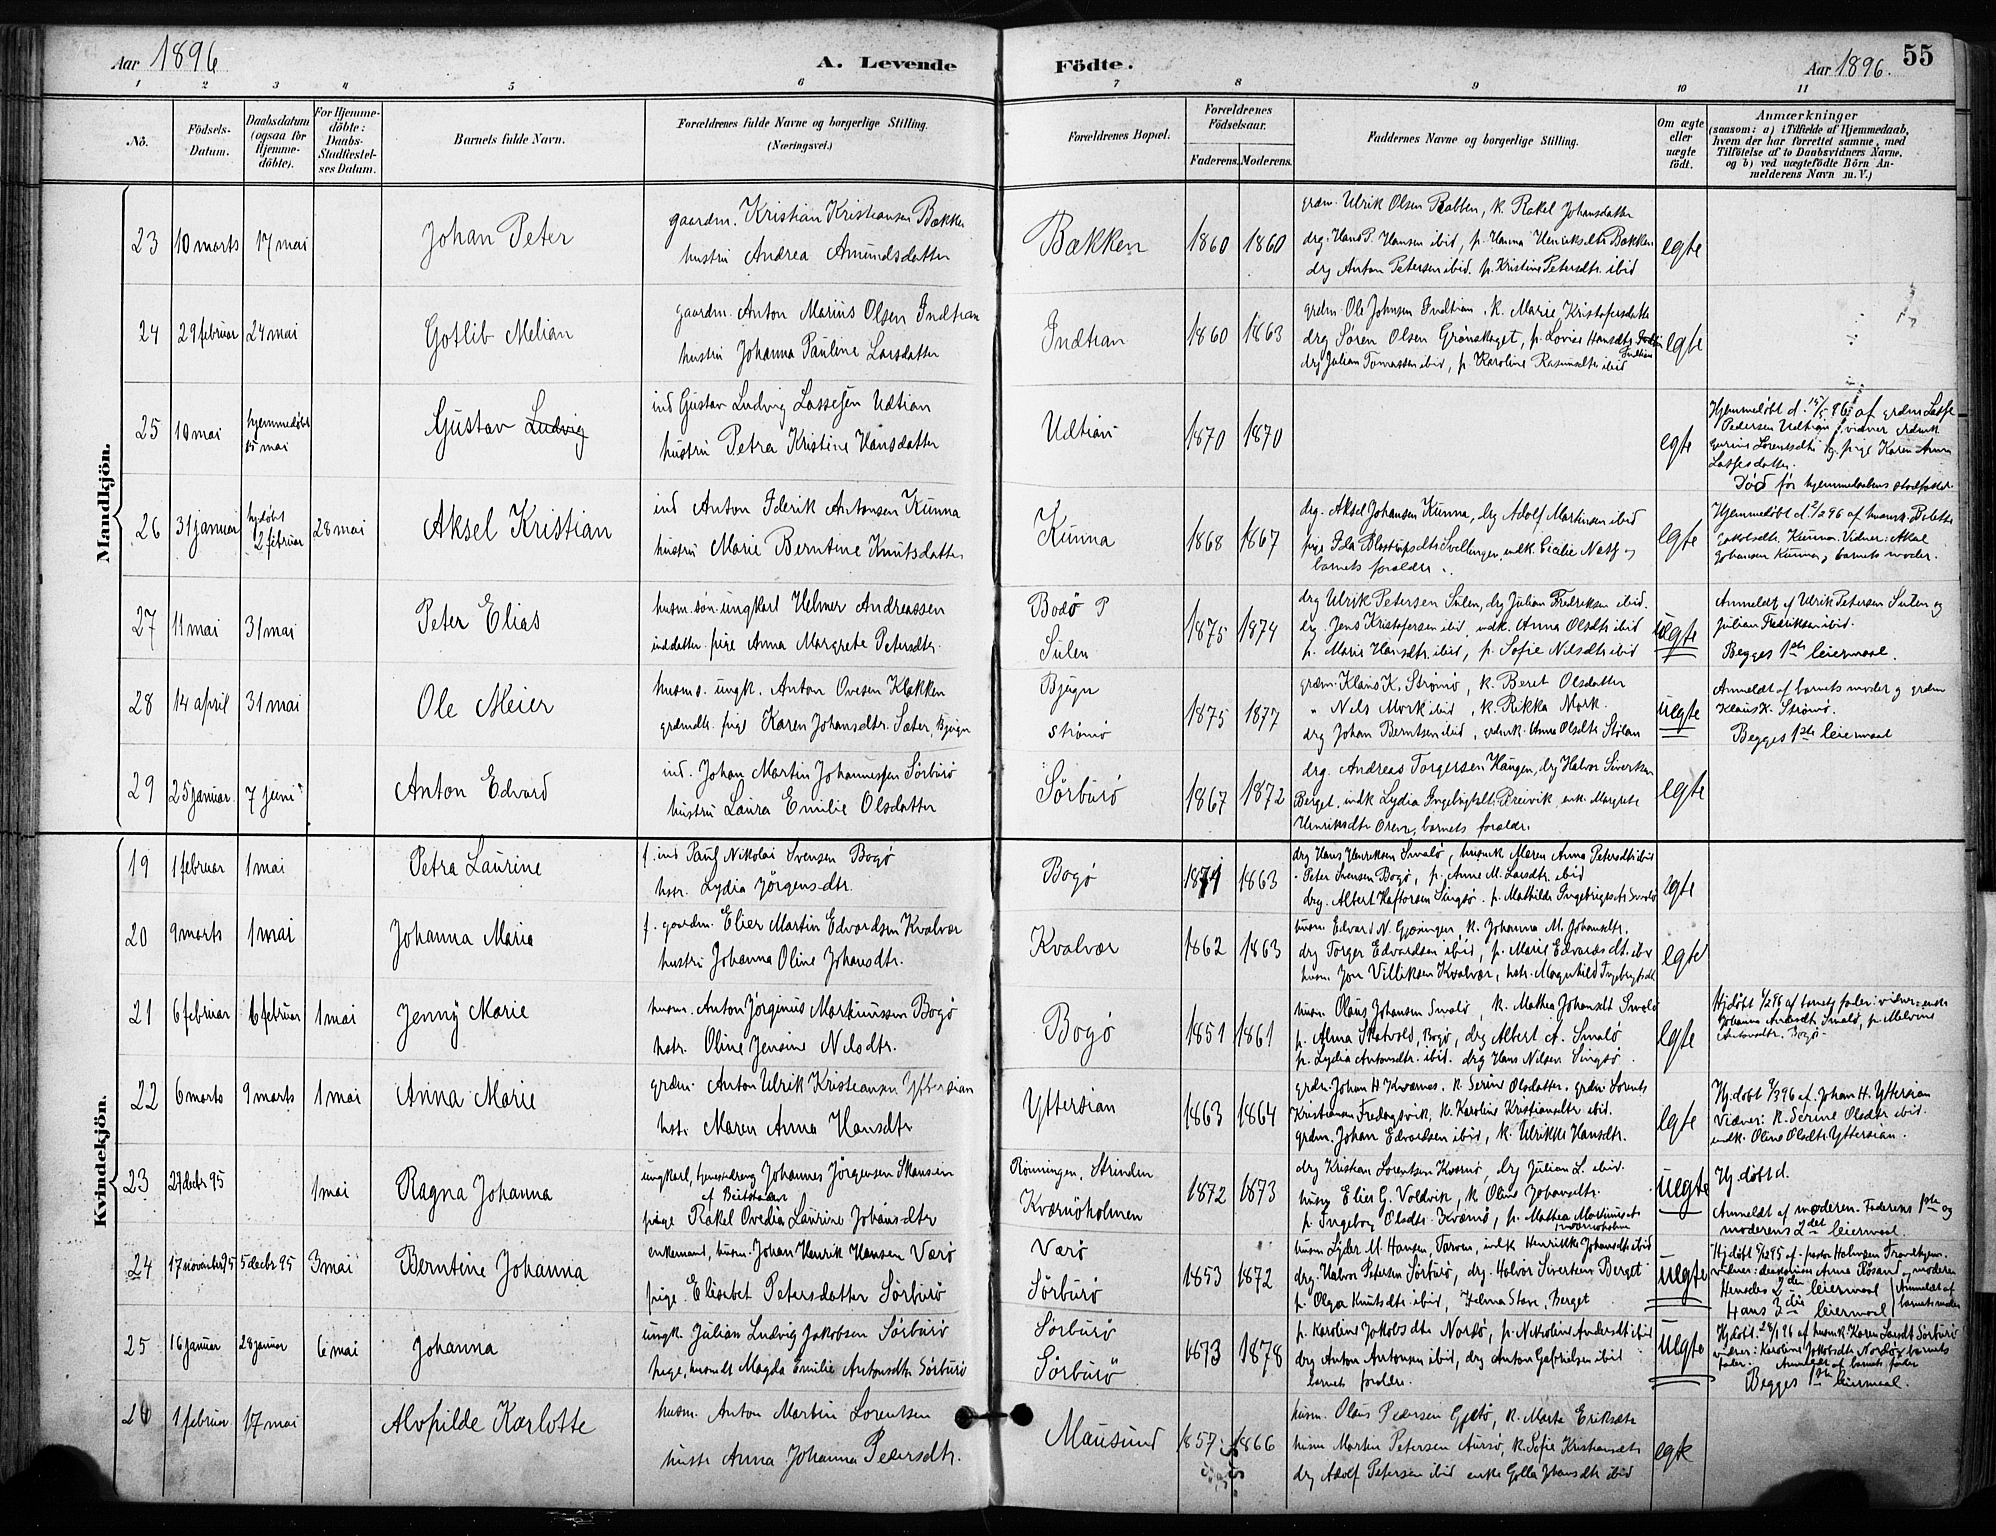 Aar 1896
A. Levende
Födte.
Aar 1896.
55
1 2 3 4 5 6 7 8 9 10 11
No.
Födsels-Datum.
Daabsdatum (ogsaa for Hjemme-döbte).
For Hjemme-döbte: Daabs-Stadfæstel-ses Datum.
Barnets fulde Navn.
Forældrenes fulde Navne og borgerlige Stilling. (Næringsvei.)
Forældrenes Bopæl.
Forældrenes Födselsaar.
Faderens. Moderens.
Faddernes Navne og borgerlige Stilling.
Om ægte eller uægte födt.
Anmærkninger
(saasom: a) i Tilfælde af Hjemmedaab, hvem der har forrettet samme, med Tilföielse af to Daabsvidners Navne, og b) ved uægtefödte Börn An-melderens Navn m. V.)
Mandkjön.
23 10 marts 17 mai Johan Peter
gaardm. Kristian Kristiansen Bække
hustru Andrea Amundsdatter
Bækken 1860 1860
grdm. Ulrik Olsen Rabben, k. Rakel Johansdatter
drg. Hans P. Hansen ibid, p. Hanna Henriksdtr Bækken
drg Anton Petersen ibid. p. Kristine Petersdtr. ibid
egte
24 29 februar 24 mai Gotlib Melian
gaardm. Anton Marius Olsen Indtian
hustru Johanna Pauline Larsdatter
Indtian 1860 1863
grdm. Ole Johnsen Indtian, k. Marie Kristofersdatter
drg Søren Olsen Grønskaget, p. Lovise Hansdtr Indtian
drg Julian Tomassen ibid, p. Karoline Rasmusdtr ibid
egte
25 10 mai hjemmedøbt 15 mai Gustav Ludvig
ind Gustav Ludvig Lassesen Udtian
hustru Petra Kristine Hansdatter
Udtian 1870 1870 egte
Hjemmedøbt d. 15/5 96 af grdm Lasse
Pedersen Udtian, vidner grdmk
Lorentsdtr og pige Karen Anna
Lassesdatter.
Død før hjemmedaabens stadfæst.
26 31 januar hjdøbt 2 februar 28 mai Aksel Kristian
ind Anton Iderik Antonsen Kunna
hustru Marie Berntine Knutsdatter
Kunna 1868 1867
drg. Aksel Johansen Kunna, drg Adolf Martinsen ibid
pige Ida Svellingen, indk. Cicilie Næss og
barnets forældre.
egte
Hjemmedøbt d 2/2 96 af husmk. Bolette
Jakobsdtr. Kunna. Vidner: Aksel
Johansen Kunna og barnets moder.
27 11 mai 31 mai Peter Elias
husm. søn ungkarl Helmer Andreassen
inddatter pige Anna Margrete Petersdtr.
Bodø P
Sulen
1875 1874
drg Ulrik Petersen Sulen, drg Julian Fredriksen ibid.
drg. Jens Kristofersen ibid, indk. Anna Olsdtr ibid
p. Marie Hansdtr. ibid, p. Sofie Nilsdtr ibid
uegte
Anmeldt af Ulrik Petersen Sulen og
Julian Fredriksen ibid.
Begges 1ste leiermaal.
28 14 april 31 mai Ole Meier
husms. ungk. Anton Ovesen Klakken
grdmdtr. pige Karen Johansdtr. Sæter, Bjugn
Bjugn
Strømø
1875 1877
grdm. Klaus K. Strømø, k. Beret Olsdatter
" Nils Mork ibid, k. Rikka Mork.
drg Johan Berntsen ibid, grdmk. Anne Olsdtr Stølan
uegte
Anmeldt af barnets moder og grdm
Klaus K. Strømø.
Begges 1ste leiermaal
29 25 januar 7 juni Anton Edvard
ind. Johan Martin Johannessen Sörburö
hustru Laura Emilie Olsdatter
Sörburö 1867 1872
drg. Andreas Torgersen Haugen, drg Halvor Sivertsen
Berget, indk Lydia Ingebrigtsdtr Breivik, enk. Margrete
Henriksdtr Oren, barnets forældre
egte
Kvindekjön.
19 1 februar 1 mai Petra Laurine
f. ind Paul Nikolai Svensen Bogø
hstr. Lydia Jörgensdtr.
Bogø 1871 1863
drg Hans Henriksen Smalø, husmk Maren Anna Petersdtr ibid
Peter Svensen Bogø, p. Anne M. Larsdtr. ibid
drg. Albert Haftorsen Singsø. p. Mathilde Ingebrigtsdtr Smalø
egte
20 9 marts 1 mai Johanna Marie
f. gaardm. Elier Martin Edvardsen Kvalvær
hustru Johanna Oline Johansdtr.
Kvalvær 1862 1863
husm. Edvard N. Gjæsingen, k. Johanna M. Johansdtr.
drg Torger Edvardsen ibid, p. Marie Edvardsdtr. ibid
husm Jon Villiksen Kvalvær, hstr. Magnhild Ingebrigtsdtr
egte
21 6 februar 6 februar 1 mai Jenny Marie
husm. Anton Jørginus Markussen Bogø
hstr. Oline Jensine Nilsdtr.
Bogø 1851 1861
husm Olaus Johansen Smalø, k. Mathea Johansdtr Smalø
p. Alma Skatvold, Bogø, drg Albert A. Smalø
p. Lydia Antonsdtr. ibid. drg Hans Nilsen Singsø.
egte
Hjdøbt 6/2 96 af barnets fader: vidner: enke
Johanna Andersdtr. Smalø, p. Melvine
Antonsdtr. Bogø.
22 6 marts 9 marts 1 mai Anna Marie
grdm. Anton Ulrik Kristiansen Yttersian
hstr Maren Anna Hansdtr
Yttersian 1863 1864
grdm. Johan H Kværnes. k. Serine Olsdatter. grdm. Lorents
Kristiansen Fredagsvik, k. Karoline Kristiansdtr. ibid.
grdm. Johan Edvardsen ibid, k. Ulrikke Hansdtr.
egte
Hj.døbt 9/3 96 af Johan H. Yttersian
Vidner: k. Serine Olsdtr ibid.
indk. Oline Olsdtr. Yttersian.
23 27 decbr 95 1 mai Ragna Johanna
ungkarl, tjenestedreng Johannes Jörgensen Skansen
af Beitstaden
pige Rakel Ovedia Laurine Johansdtr
Rønningen, Strinden
Kværnöholmen
1872 1873
drg Kristian Lorentsen Kværnø, drg Julian L. ibid.
husm Elias G. Voldvik, k. Oline Johansdtr.
p. Ingeborg Olsdtr. Kværnø, p. Mathea Martinusdtr
Kværnøholmen
uegte
Hj. døbt d.
Anmeldt af moderen. Faderens 1ste og
moderens 2det leiermaal.
24 17 november 95 5 decbr 95 3 mai Berntine Johanna
enkemand, husm. Johan Henrik Hansen Værø
pige Elisabet Petersdatter Sörburö
Værø
Sörburö
1853 1872
husm Lyder M. Hansen, Tarven, indk Henrikke Johansdtr ibid
drg Halvor Petersen Sörburö, drg. Halvor Sivertsen Berget
p. Olga Knutsdtr. ibid, Helma Stave, Berget
uegte
Hj.døbt 5/12 95 af pastor Holmsen Trondhjem.
vidner: Anna Røsand og moderen
Hendes 2den leiermaal
Hans 3die leiermaal
Anmeldt af barnets moder
25 16 januar 28 januar 6 mai Johanna
ungk. Julian Ludvig Jakobsen Sörburö
pige, husmdt Magda Emilie Antonsdtr Sörburö
Sörburö
Sörburö
1873 1878
p. Karoline Jakobsdtr Nordø, p. Nikoline Andersdtr ibid
drg Anton Antonsen ibid, drg Anton Gabrielsen ibid
barnets forældre.
uegte
Hj.døbt 28/1 96 af husmk. Karen Larsdtr Sörburö
vidner: Karoline Jakobsdtr Nordø og barnets
fader. Anmeldt af barnets fader
Begges 1ste leiermaal.
26 1 februar 17 mai Alvhilde Karlotte
husm. Anton Martin Lorentsen
hustr Anna Johanna Pedersdtr.
Mausund 1857 1866
husm. Olaus Pedersen Gjetø, k. Marta Eriksdtr
husm Martin Petersen Aursø, k. Sofie Kristiansdtr
drg Adolf Petersen ibid enke Golla Johansdtr ibid
egte